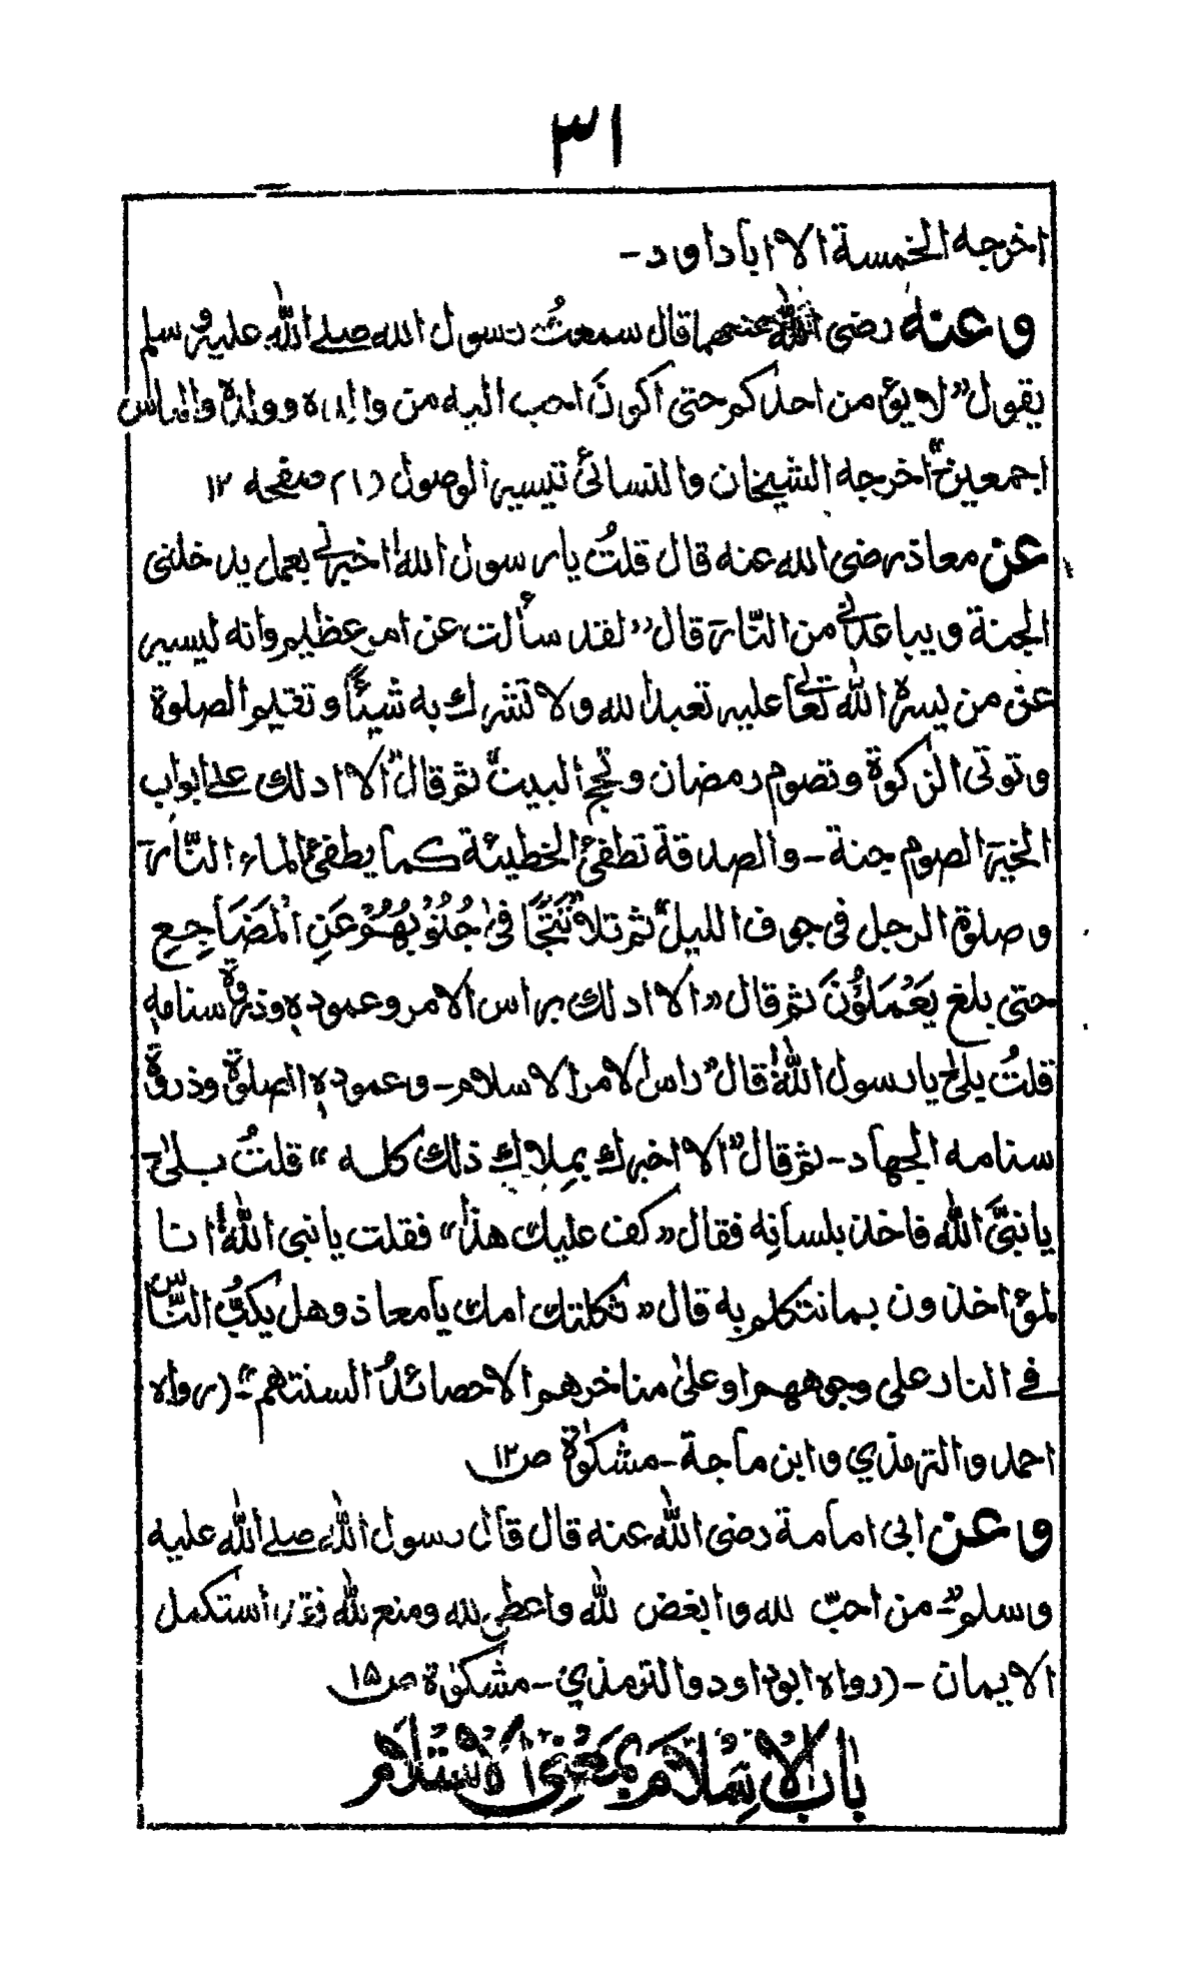 ٣١
اخرجه الخمسة الا اباداود-
وعنه رضی الله عنهما قال سمعتُ رسول الله صلے الله علیه وسلم
یقول "لا یؤمن احدکم حتی اکونَ احب الیه من والده وولده والناس
اجمعین" اخرجه الشیخان والنسائی تیسیر الوصول (۱) صفحه ۱۲
عن معاذ رضی الله عنه قال قلتُ یا رسول الله اخبرنی بعمل یدخلنی
الجنة ویباعدنی من النّار قال "لقد سألت عن امر عظیم وانه لیسیر
علی من یسرہ الله تعالٰی علیه تعبد الله ولا تشرك به شیئًا وتقیم الصلوة
وتوتی الزکوة وتصوم رمضان وتحج البیت" ثم قال "الا ادلك علے ابواب
الخیر الصوم جنة-والصدقة تطفئ الخطیئة کما یطفئ الماء النّار
وصلوة الرجل فی جوف اللیل" ثم تلا "تَتَجَافٰی جُنُوْبُهُمْ عَنِ الْمَضَاجِعِ
حتی بلغ یَعْمَلُوْنَ ثم قال "الا ادلك براس الامر وعمودہ وذروة سنامه
قلتُ بلٰی یا رسول الله قال "راس الامر الاسلام-وعمودہ الصلوة وذروة
سنامه الجهاد-ثم قال "الا اخبرك بمِلاك ذلك کله" قلتُ بلٰی
یا نبیَّ الله فاخذ بلسانِه فقال "کف علیك هذا" فقلت یا نبی الله انا
لمؤاخذون بما نتکلم به قال "ثکلتك امك یا معاذ وهل یکبُّ النّاس
فے النار علی وجوههم او علٰی مناخرهم الا حصائدُ السنتهم"-(رواہ
احمد والترمذي وابن ماجة-مشکوٰة ص۱۲
وعن ابی امامة رضی الله عنه قال قال رسول الله صلے الله علیه
وسلم "-من احبّ لله وابغض لله واعطی لله ومنع لله فقد استکمل
الایمان-(رواه ابوداود والترمذي-مشکوٰة ص۱۵
بابُ الْاِسْلَامِ بِمَعْنَی الْاِسْتِسْلَامِ